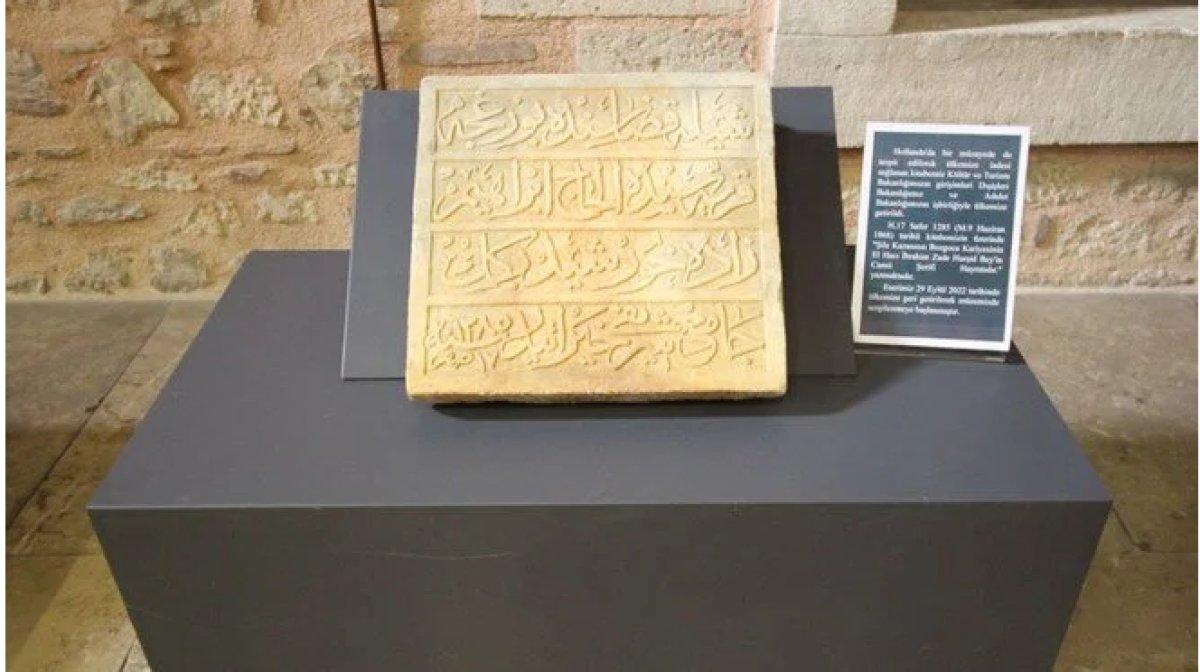 شیله قضاسنده بوزغجه
قریه سنده الحاج ابراهیم
زاده خورشید بكك
جامع شریفی خیراتیدر ١٢٨٥
Hollanda'da bir müzayede de
tespit edilerek ülkemize iadesi
sağlanan kitabemiz Kültür ve Turizm
Bakanlığımızın girişimleri Dışişleri
Bakanlığımız ve Adalet
Bakanlığımızın işbirliğiyle ülkemize
getirildi.
H.17 Safer 1285 (M.9 Haziran
1868) tarihli kitabemizin üzerinde
"Şile Kazasının Bozgoca Kariyesinin
El Hacı İbrahim Zade Hurşid Bey'in
Camii Şerifi Hayratıdır."
yazmaktadır.
Eserimiz 29 Eylül 2022 tarihinde
ülkemize geri getirilerek müzemizde
sergilenmeye başlanmıştır.